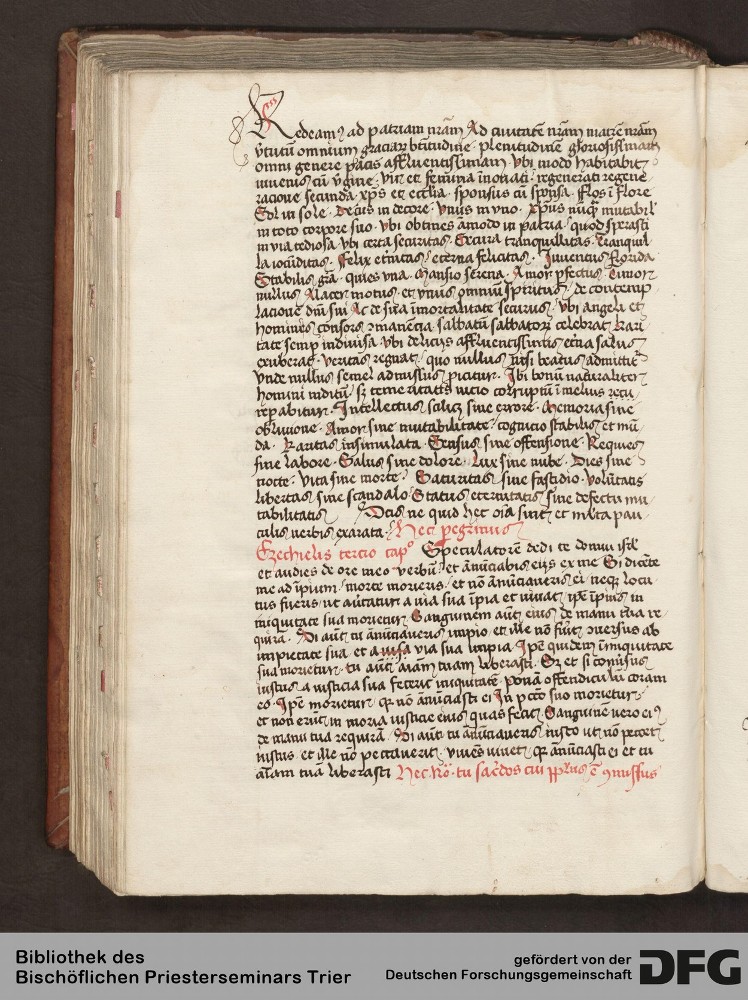 Redeam9 ad patriam nr̄am Ad ciuitatē nr̄am matrē nr̄am
omnium graciarꝝ plenitudine gloriosissimam
omni genere pacis affluentissimam vbi modo habitabit
iuuenis cū v̓gine vir et femina īnouati regenerati regene
racione secunda xp̄s et eccl̓ia sponsus cū sponsa fflos ī flore
Sol in sole Decus in decore vnus in vno xp̄us nūq̄ mutabil̓
in toto corpore suo vbi obtines amodo in patria quod sperasti
in via tediosa vbi certa securitas Secura tranquillitas Tranquil
la iocūditas Felix et̓nitas et̓erna felicitas Iuuentus florida
Stabilis gr̄a quies vna mansio serena Amor p̄fectus Timor
nullus Alacer motus et vnus omniū sp̄iritus de contemp
lacione dn̄i sui Ac de sua īmortalitate securus vbi angeli et
homines consors ꝯmanencia sabbatū sabbatorꝝ celebrat kari
tate semp̱ indiuisa vbi deliciis affluentissimis et̓na salus
exuberat veritas regnat quo nullus nisi beatus admittit̓
vnde nullus semel admissus ꝓicitur Ibi bonū naturaliter
homini inditū sꝫ temeritatis vicio corruptū ī melius recu
Intellectus scilicꝫ sine errore Memoria sine
obliuione Amor sine mutabilitate cognicio stabilis et mū
da karitas insimulata Sensus sine offensione Requies
sine labore Salus sine dolore Lux sine nube Dies sine
nocte vita sine morte Saturitas sine fastidio volūtatis
libertas sine scandalo Status eternitatis sine defectu mu
tabilitatis ne quid hec oīa sint et iuxta pau
culis verbis exarata Hec pegrinus
Ezechielis tercio cap̊ Speculatorē dedi te domui isrl̓
et audies de ore meo verbū et ānūciabis eys ex me Si dicēte
me ad īpium morte morieris et nō ānūciaueris ei neqꝫ locu
tus fueris ut au̓tatur a via sua īpia et viuat ip̄e īpius in
iniquitate sua morietur Sanguinem autē eius de manu tua re
quirā Si autē tu ānūciaueris impio et ille nō fu̓it ꝯuersus ab
impietate sua et a via sua impia Ip̄e quidem ī iniquitate
sua morietur tu autē aīam tuam liberasti Sꝫ et si conuersus
iustus a iusticia sua fecerit iniquitatē ponā offendiculū coram
eo Ip̄e morietur qꝛ nō ānūciasti ei In pctō suo morietur
et non erūt in moria iusticie eius quas fecit Sanguinē vero ei9
de manu tua requirā Si autē tu ānūciaueris iusto ut nō peccet
iustus et ille nō peccauerit viuēs viuet qꝛ ānūciasti ei et tu
aīam tuā liberasti Hec tu sac̓dos cui pp̄lus ē ꝯmissus
Bibliothek des
Bischöflichen Priesterseminars Trier
gefördert von der
Deutschen Forschungsgemeinschaft
DFG